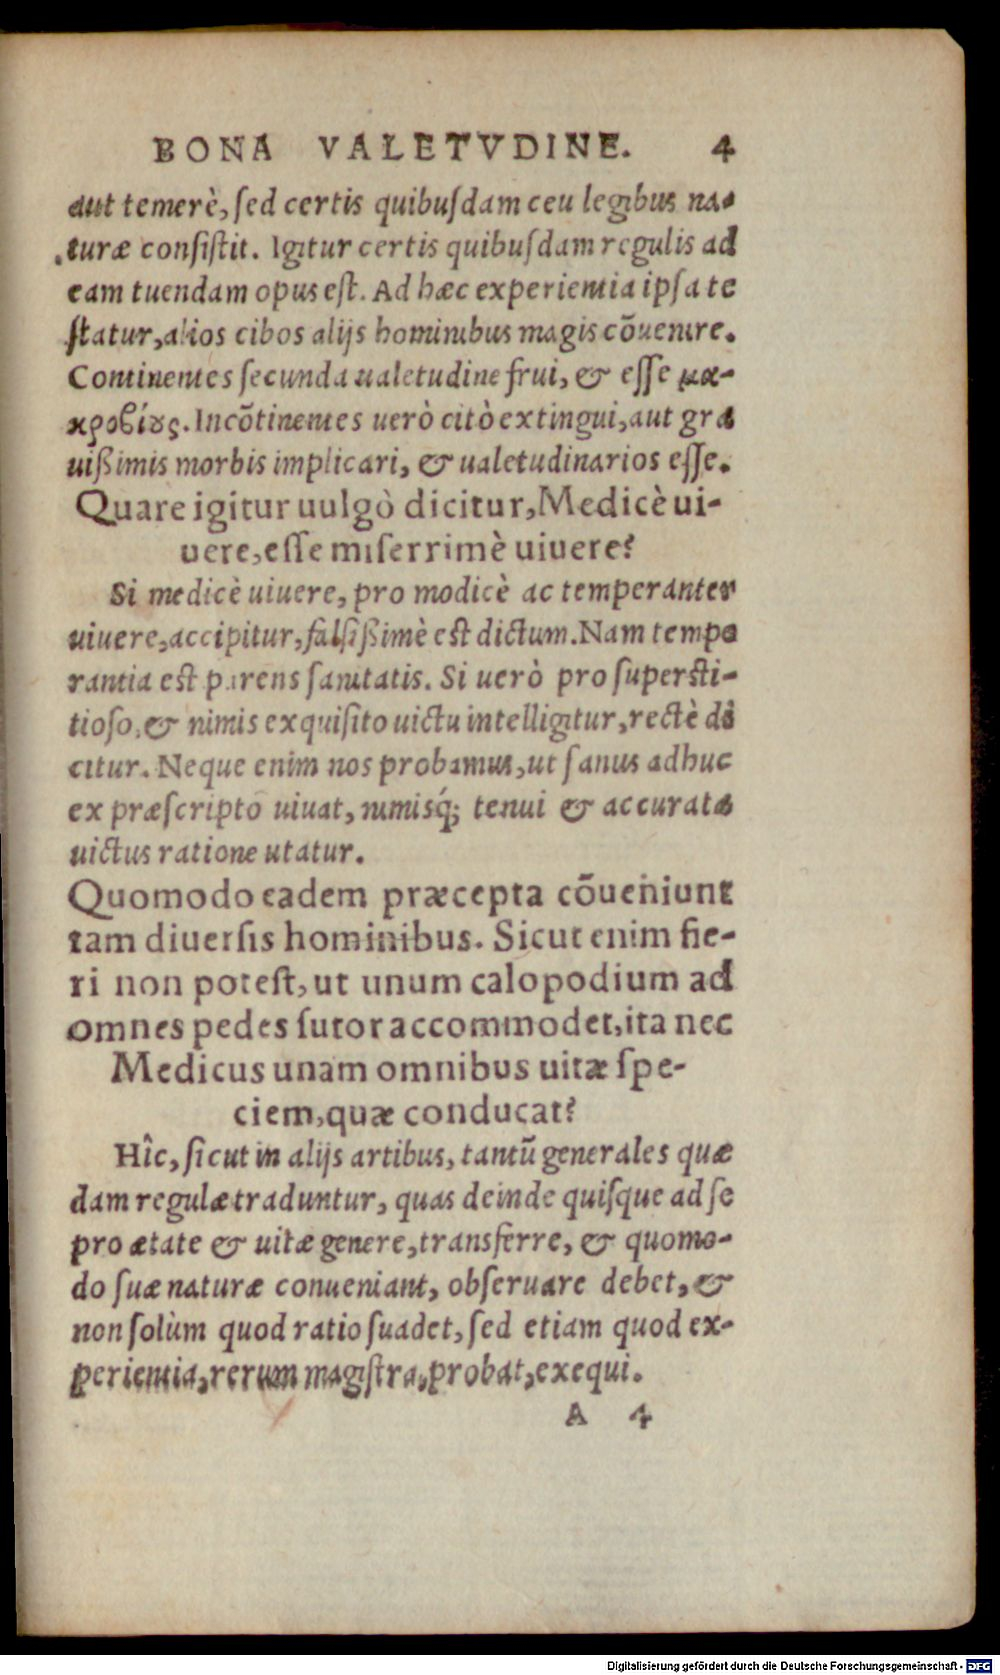 BONA VALETVDINE. 4
aut temerè, ſed certis quibuſdam ceu legibus na-
turæ conſiſtit. Igitur certis quibuſdam regulis ad
eam tuendam opus eſt. Ad hæc experientia ipſa te
ſtatur, alios cibos alijs hominibus magis cõuenire.
Continentes ſecunda ualetudine frui, & eſſe μα-
κροβίους. Incõtinentes uerò citò extingui, aut gra
uißimis morbis implicari, & ualetudinarios eſſe.
Quare igitur uulgò dicitur, Medicè ui-
uere, eſſe miſerrimè uiuere?
Si medicè uiuere, pro modicè ac temperanter
uiuere, accipitur, falſißimè eſt dictum. Nam tempe
rantia eſt parens ſanitatis. Si uerò pro superſti-
tioſo, & nimis exquiſito uictu intelligitur, rectè di
citur. Neque enim nos probamus, ut ſanus adhuc
ex præſcripto uiuat, nimisq́; tenui & accurata
uictus ratione utatur.
Quomodo eadem præcepta cõueniunt
tam diuerſis hominibus. Sicut enim fie-
ri non poteſt, ut unum calopodium ad
omnes pedes ſutor accommodet, ita nec
Medicus unam omnibus uitæ ſpe-
ciem, quæ conducat?
Hîc, ſicut in alijs artibus, tantũ generales quæ
dam regulæ traduntur, quas deinde quiſque ad ſe
pro ætate & uitæ genere, transferre, & quomo-
do ſuæ naturæ conueniant, obſeruare debet, &
non ſolùm quod ratio ſuadet, ſed etiam quod ex-
perientia, rerum magiſtra, probat, exequi.
A 4
Digitalisierung gefördert durch die Deutsche Forschungsgemeinschaft - DFG